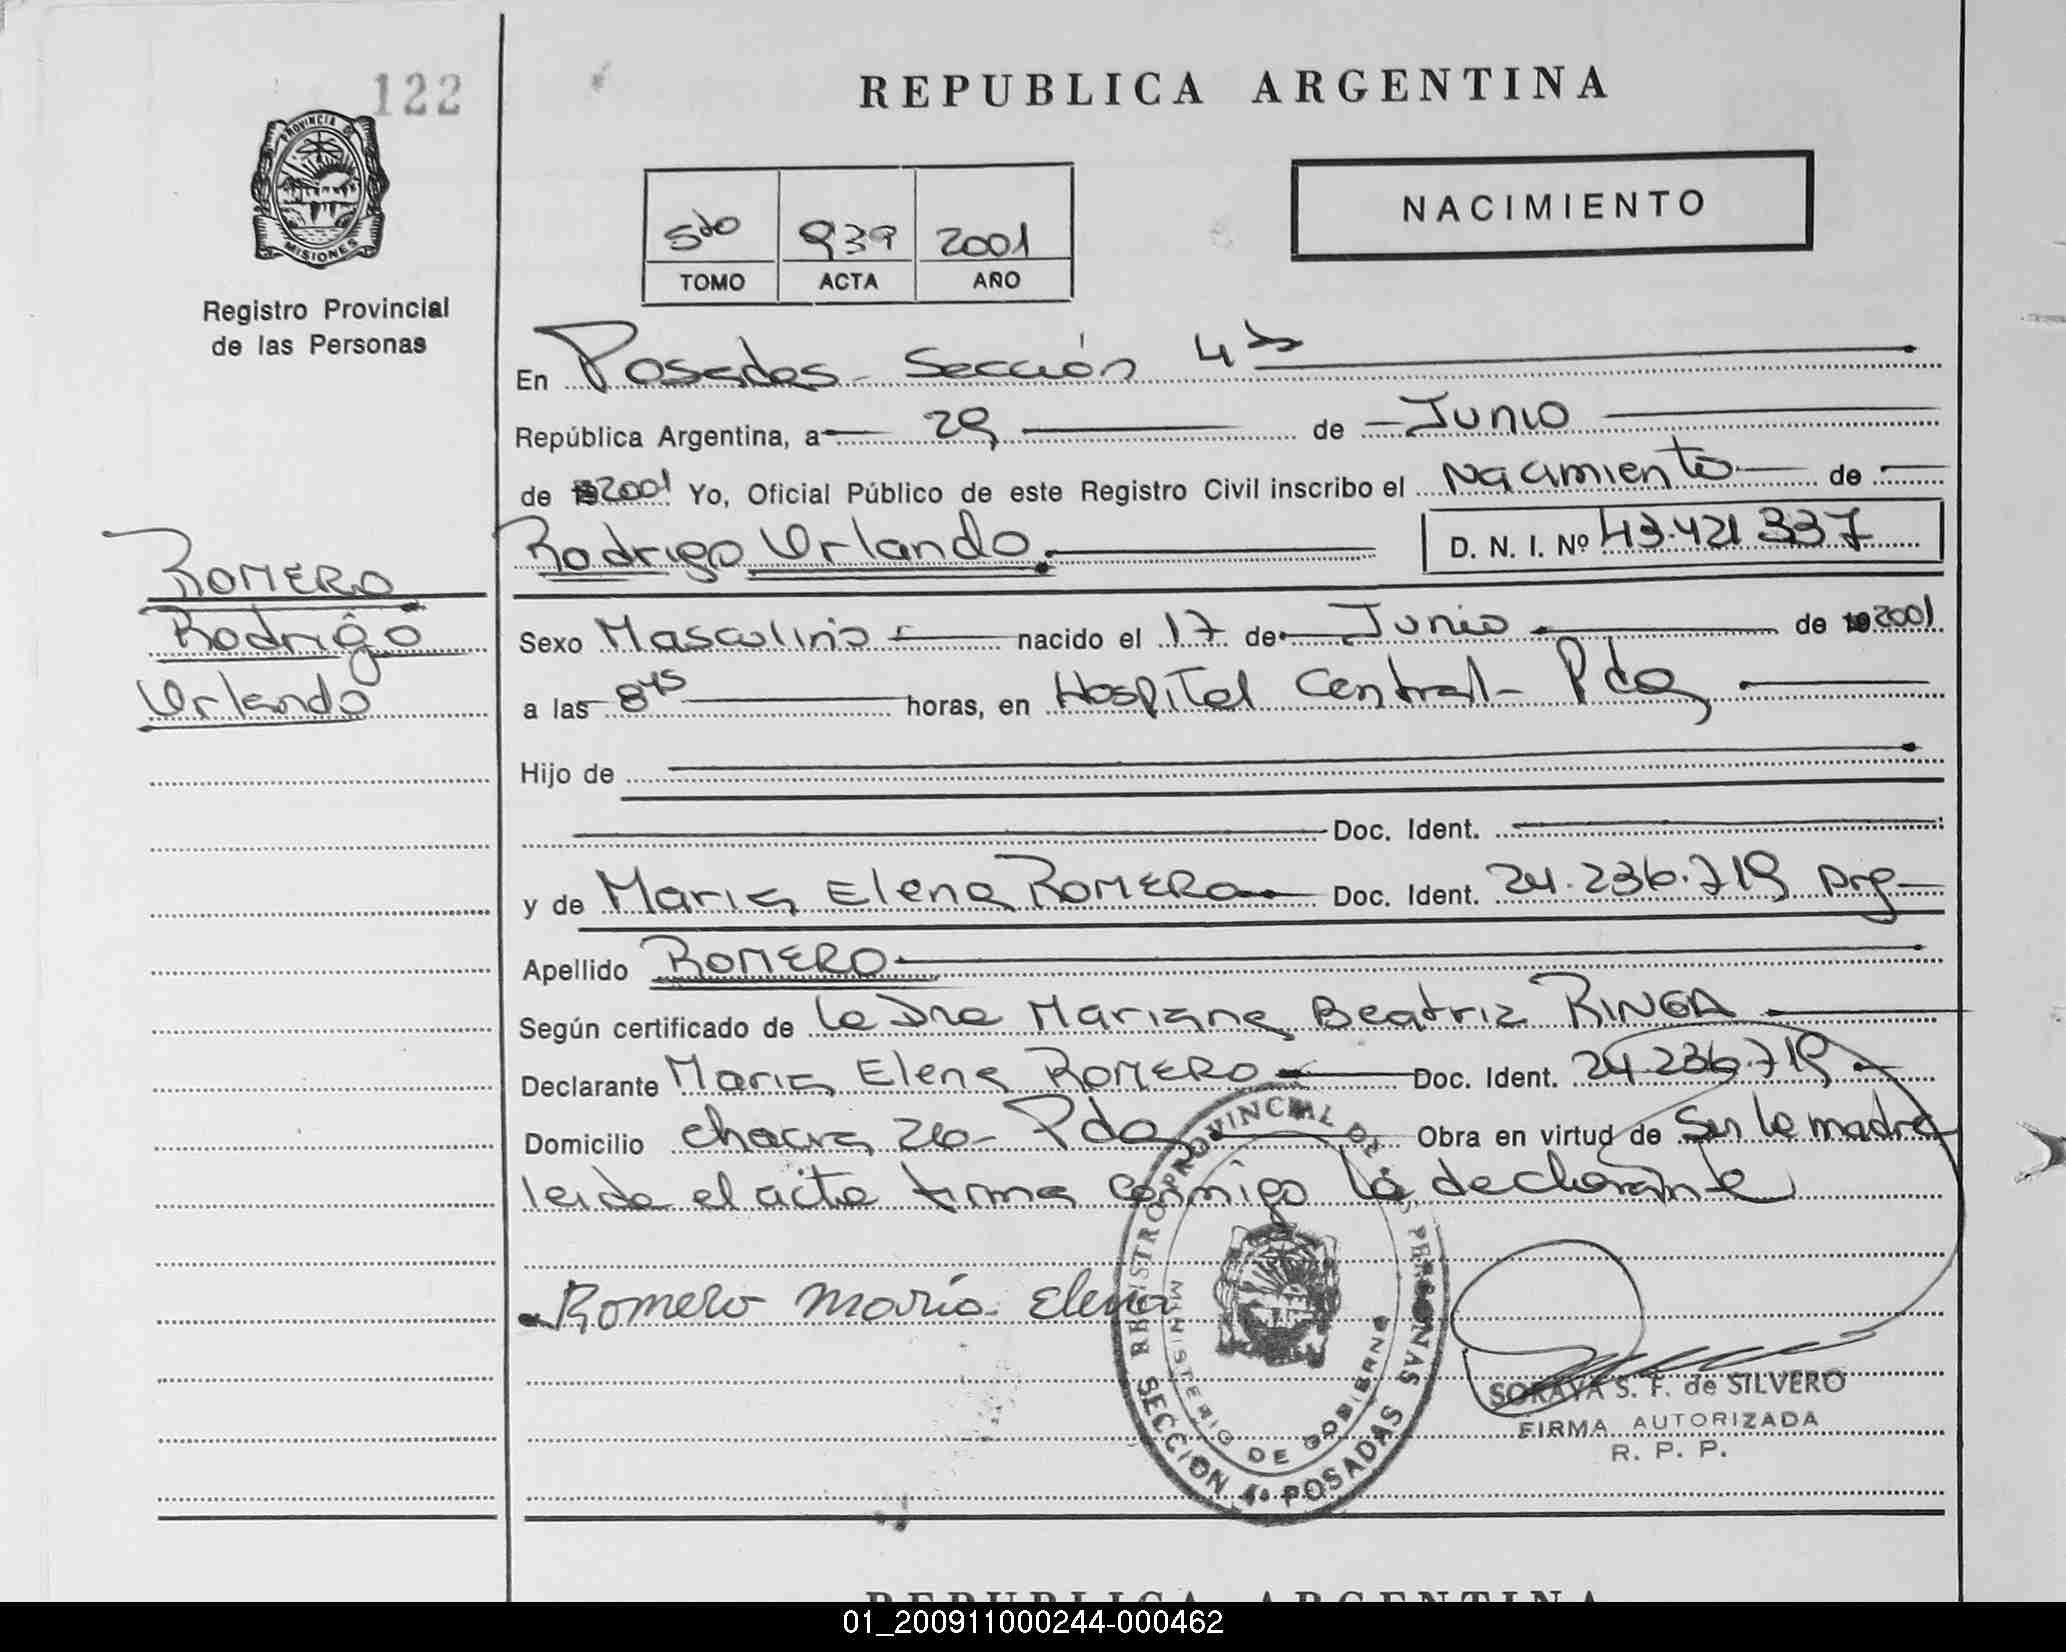 122
REPUBLICA ARGENTINA
PROVINCIA DE
MISIONES
Registro Provincial
de las Personas
NACIMIENTO
5to 939 2001
TOMO ACTA AÑO
En Posadas - Sección 4ta
República Argentina, a 29 de Junio
de 2001 Yo, Oficial Público de este Registro Civil inscribo el Nacimiento de
Rodrigo Orlando. D. N. I. Nº 43.421.337
ROMERO
Rodrigo
Orlando
Sexo Masculino nacido el 17 de Junio de 2001
a las 8 45 horas, en Hospital Central - Pdas
Hijo de
Doc. Ident.
y de Maria Elena ROMERO Doc. Ident. 24.236.719 Arg
Apellido ROMERO
Según certificado de la Dra Mariana Beatriz RINGA
Declarante Maria Elena ROMERO Doc. Ident. 24.236.719
Domicilio chacra 26 - Pdas Obra en virtud de Ser la madre
leida el acta firma conmigo la declarante
Romero María Elena
REGISTRO PROVINCIAL DE LAS PERSONAS
MINISTERIO DE GOBIERNO
SECCION 4a POSADAS
SORAYA S. F. de SILVERO
FIRMA AUTORIZADA
R. P. P.
REPUBLICA ARGENTINA
01_200911000244-000462